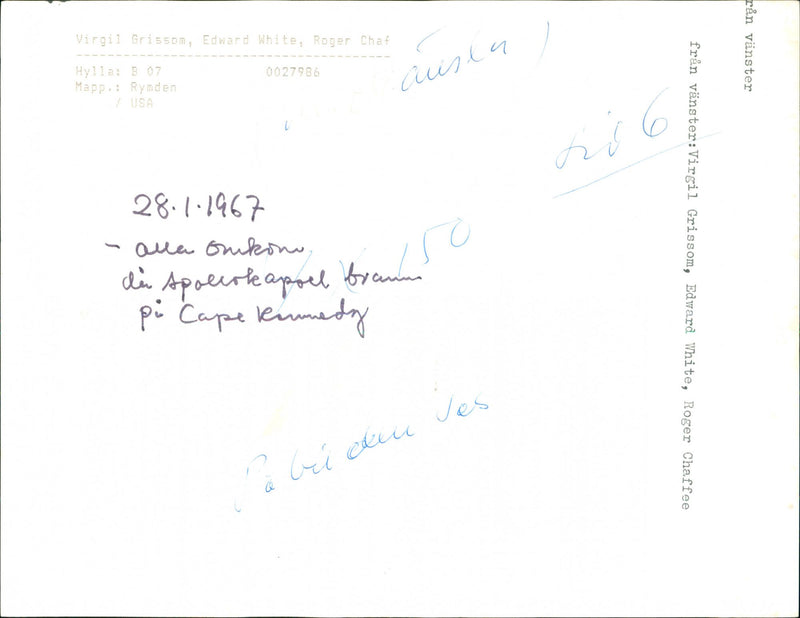 Virgil Grissom, Edward White, Roger Chaf
Hylla: B 07 0027986
Mapp.: Rymden
/ USA
28.1.1967
- alla omkom
då Apollokapsel brann
på Cape Kennedy
150
På bilden ses
från vänster:Virgil Grissom, Edward White, Roger Chaffee
rån vänster